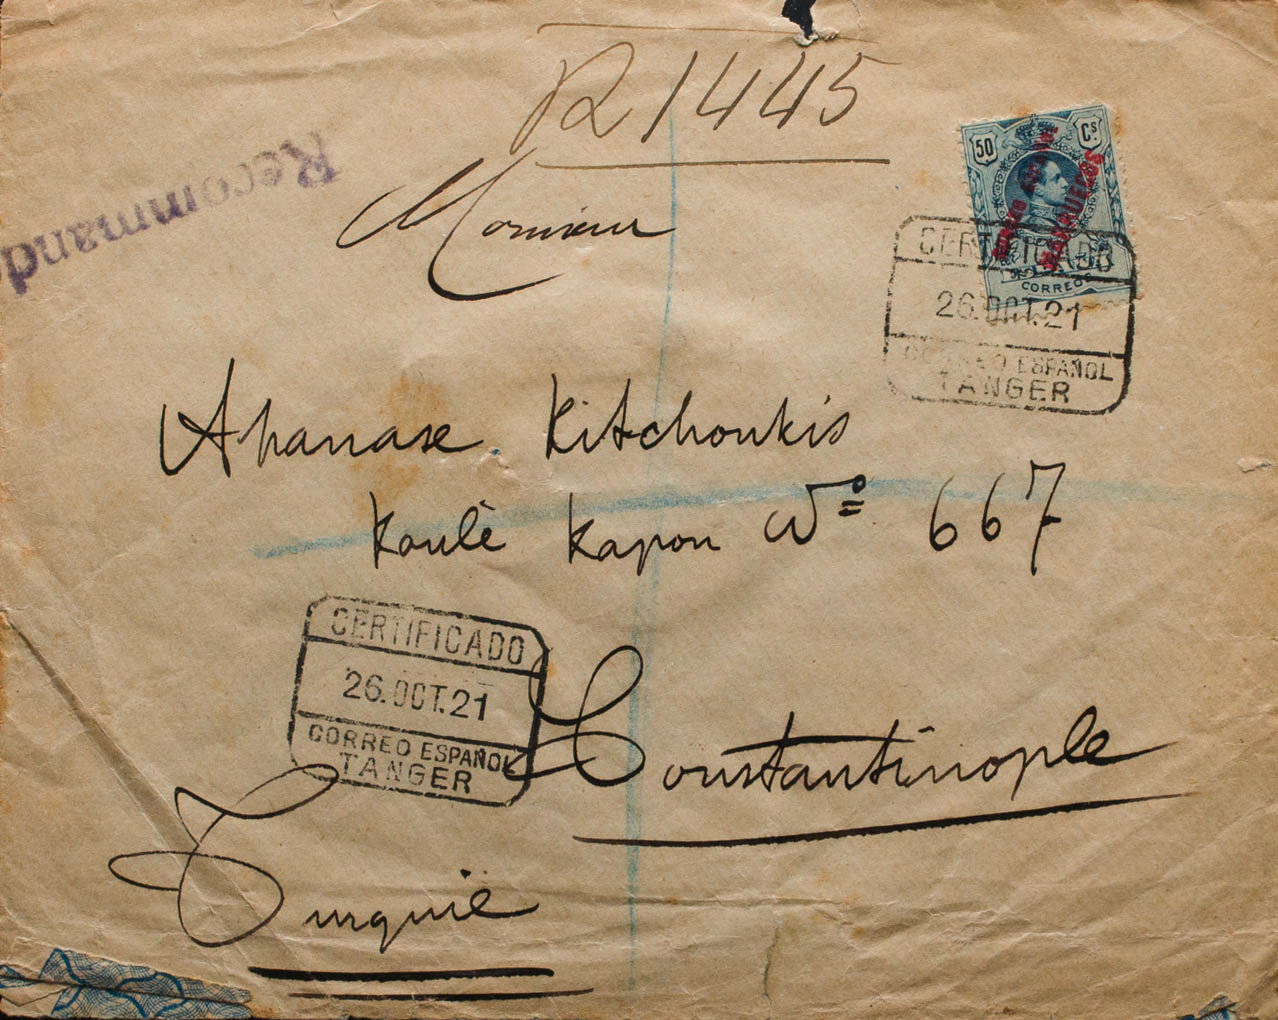 R 1445
Recommand
Monsieur
50 Cs
MARRUECOS
CORREOS
CERTIFICADO
26.OCT.21
CORREO ESPAÑOL
TANGER
Ahanase Kitchoukis
Koulè Kapou No 667
CERTIFICADO
26.OCT.21
CORREO ESPAÑOL
TANGER
Constantinople
Turquie